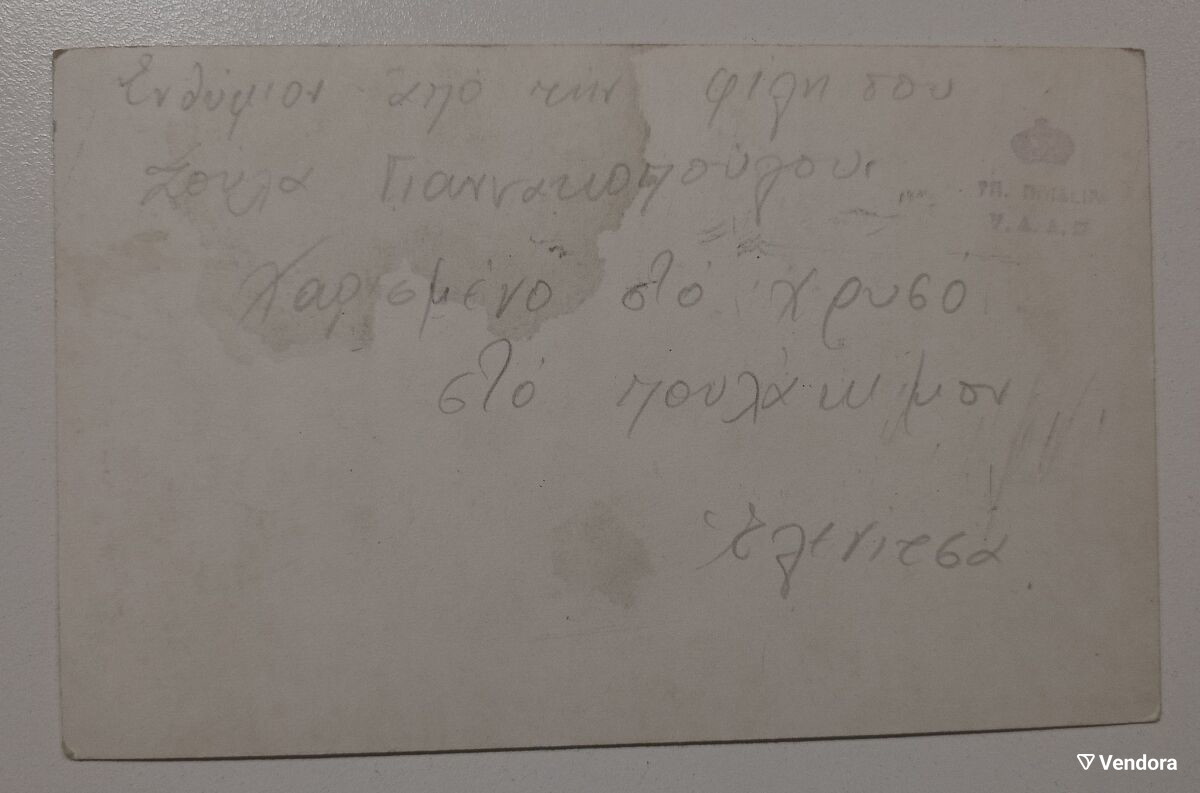 Ενθύμιον ἀπό την φίλη σου
Ζούλα Γιαννακοπούλου
Χαρισμένο στό χρυσό
στό πουλάκι μου
Ἑλενίτσα
Vendora